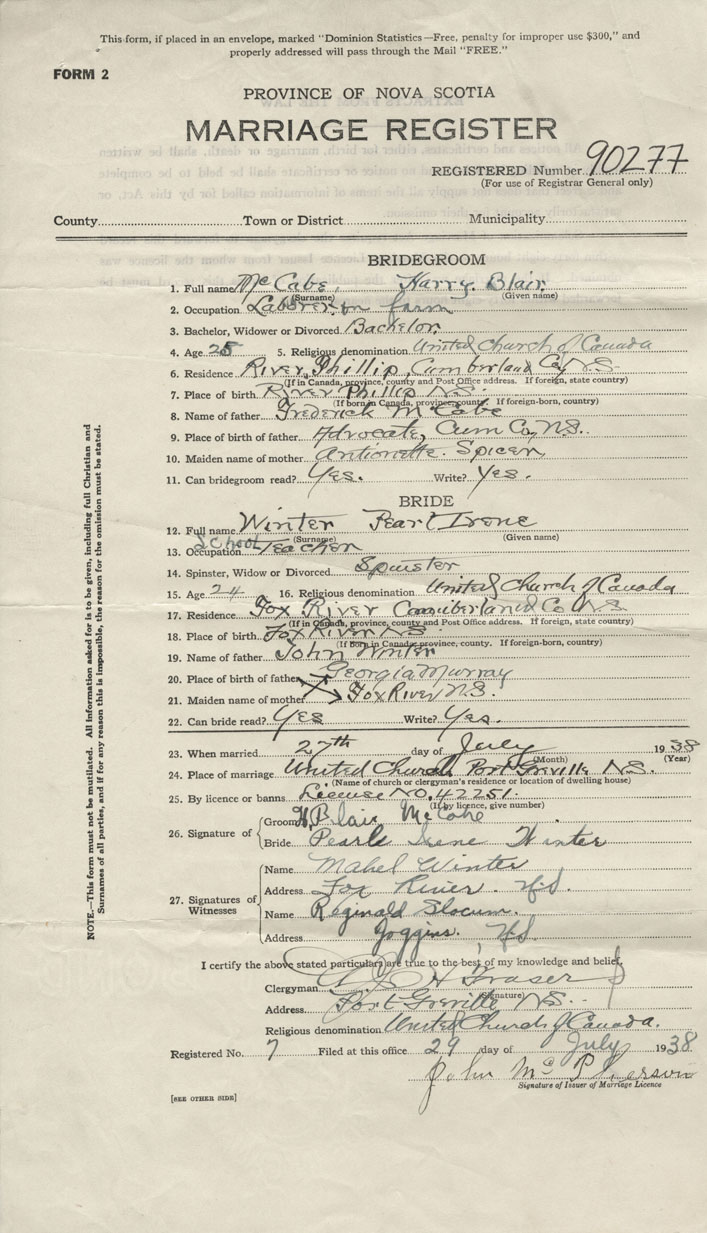 This form, if placed in an envelope, marked "Dominion Statistics—Free, penalty for improper use $300," and
properly addressed will pass through the Mail "FREE."
FORM 2
PROVINCE OF NOVA SCOTIA
MARRIAGE REGISTER
REGISTERED Number 90277
(For use of Registrar General only)
County Town or District Municipality
BRIDEGROOM
1. Full name McCabe, Harry Blair
(Surname) (Given name)
2. Occupation Laborer on farm
3. Bachelor, Widower or Divorced Bachelor
4. Age 25 5. Religious denomination United Church of Canada
6. Residence River Phillip, Cumberland Co. N.S.
(If in Canada, province, county and Post Office address. If foreign, state country)
7. Place of birth River Phillip N.S.
(If born in Canada, province, county. If foreign-born, country)
8. Name of father Frederick McCabe
9. Place of birth of father Advocate, Cum Co, N.S.
10. Maiden name of mother Antionette Spicer
11. Can bridegroom read? Yes. Write? Yes.
BRIDE
12. Full name Winter Pearl Irene
(Surname) (Given name)
13. Occupation School Teacher
14. Spinster, Widow or Divorced Spinster
15. Age 24 16. Religious denomination United Church of Canada
17. Residence Fox River Cumberland Co N.S.
(If in Canada, province, county and Post Office address. If foreign, state country)
18. Place of birth Fox River N.S.
(If born in Canada, province, county. If foreign-born, country)
19. Name of father John Winter
20. Place of birth of father Georgia Murray
21. Maiden name of mother Fox River N.S.
22. Can bride read? Yes Write? Yes.
23. When married 27th day of July 1938
(Month) (Year)
24. Place of marriage United Church Port Greville N.S.
(Name of church or clergyman's residence or location of dwelling house)
25. By licence or banns License No. 42251
(If by licence, give number)
26. Signature of { Groom H. Blair McCabe
Bride Pearle Irene Winter
27. Signatures of Witnesses { Name Mabel Winter
Address Fox River. N.S.
Name Reginald Slocum.
Address Joggins. N.S.
I certify the above stated particulars are true to the best of my knowledge and belief,
Clergyman Fraser
(Signature)
Address Port Greville N.S.
Religious denomination United Church of Canada.
Registered No. 7 Filed at this office 29 day of July 1938
John McPherson
Signature of Issuer of Marriage Licence
[SEE OTHER SIDE]
NOTE.—This form must not be mutilated. All information asked for is to be given, including full Christian and
Surnames of all parties, and if for any reason this is impossible, the reason for the omission must be stated.